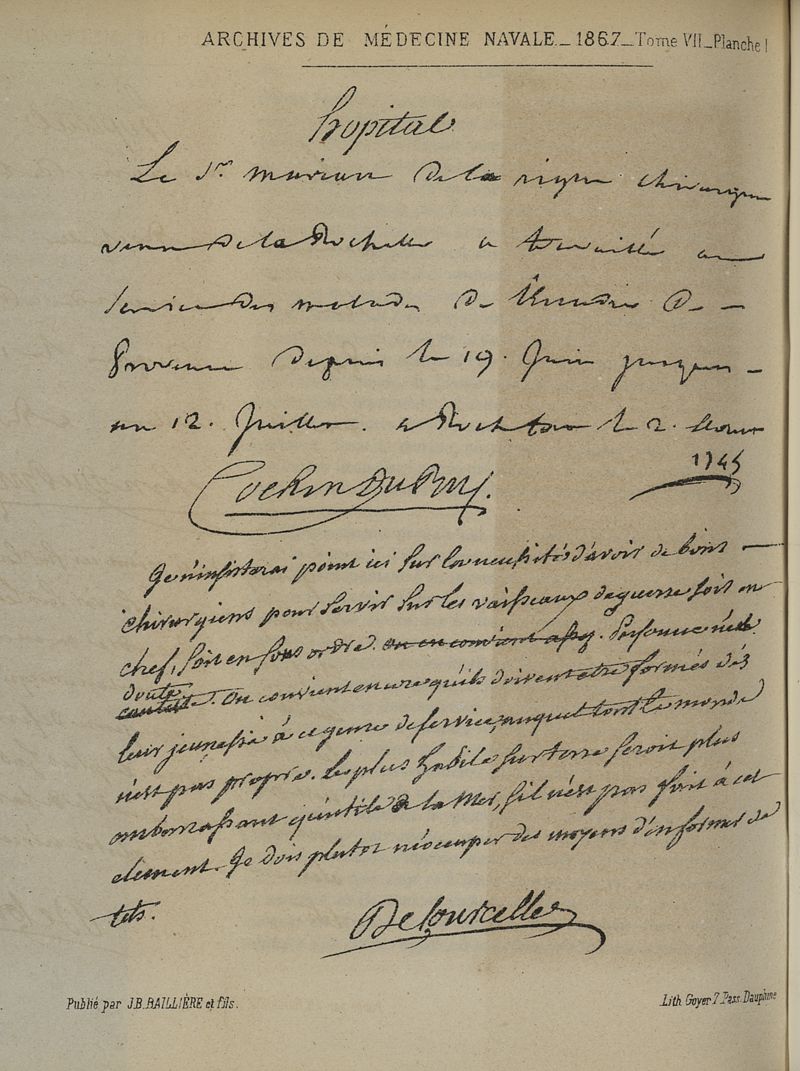 ARCHIVES DE MÉDECINE NAVALE_1867_Tome VII_Planche I
hopital
Le Sr. de la vigne chirurgien
venu de la Rochelle a travaillé au
service des malades de l'Escadre de
Provence depuis le 19. Juin jusques
au 12. Juillet. a Rochefort le 2. Aoust
1745
Cochon Dupuy.
Je n'insisterai point ici sur la necessité d'avoir de bons
chirurgiens pour servir sur les vaisseaux de guerre soit en
chef, soit en sous ordre. on en convient assez. Personne n'en
doute
conteste. On convient encore qu'ils doivent etre formés dés
leur jeunesse à ce genre de service, auquel tout le monde
n'est pas propre. Le plus habile sur terre seroit plus
embarrassant qu'utile à la Mer, s'il n'est pas fait à cet
element. Je dois plutot m'occuper des moyens d'en former de
tels.
De Courcelles
Publié par J.B. BAILLIÈRE et fils.
Lith. Goyer 7. Pass. Dauphine